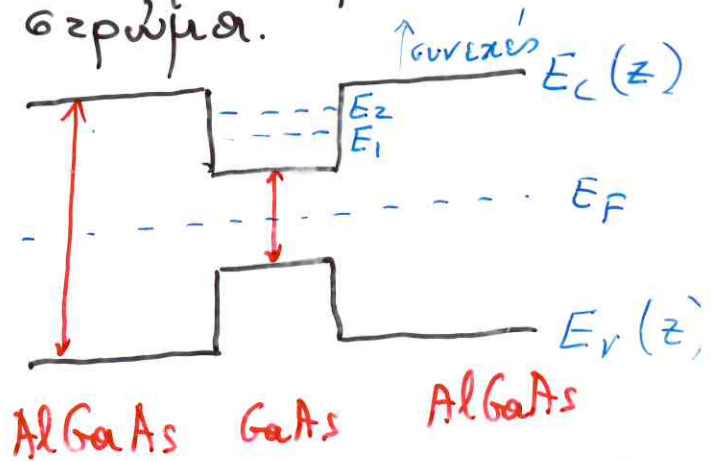 στρώμα.
συνεχές
E_c (z)
E_2
E_1
E_F
E_v (z)
AlGaAs GaAs AlGaAs